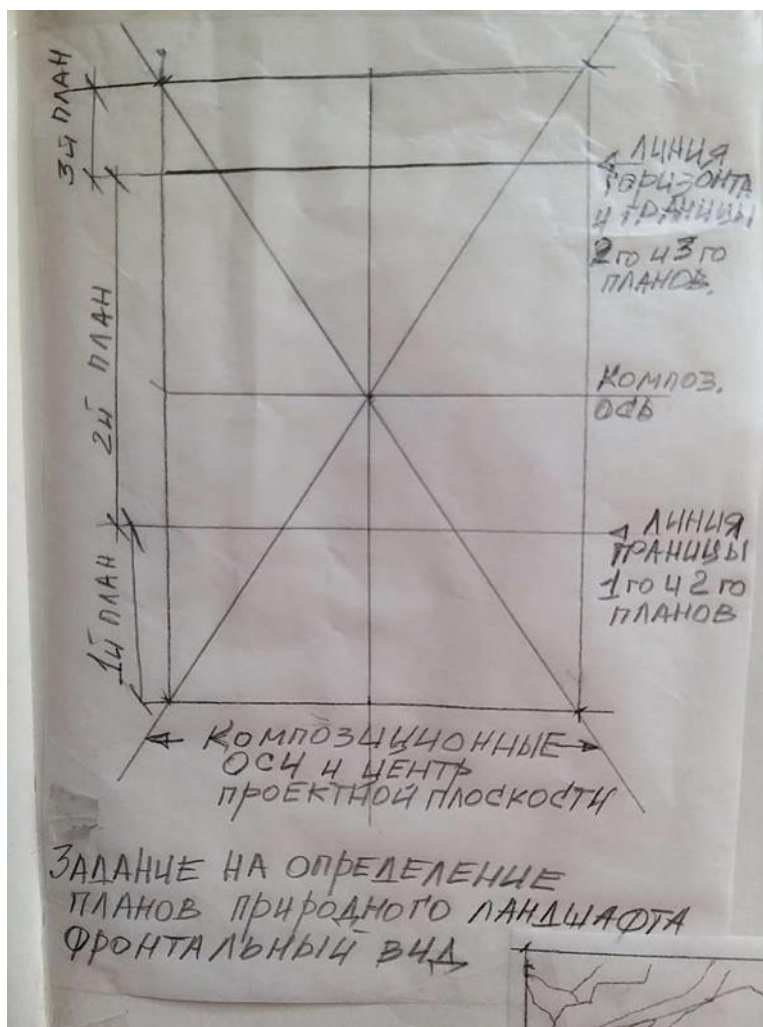 3й ПЛАН
2й ПЛАН
1й ПЛАН
ЛИНИЯ
ГОРИЗОНТА
И ГРАНИЦЫ
2го и 3го
ПЛАНОВ.
КОМПОЗ.
ОСЬ
ЛИНИЯ
ГРАНИЦЫ
1го и 2го
ПЛАНОВ
КОМПОЗИЦИОННЫЕ
ОСИ И ЦЕНТР
ПРОЕКТНОЙ ПЛОСКОСТИ
ЗАДАНИЕ НА ОПРЕДЕЛЕНИЕ
ПЛАНОВ ПРИРОДНОГО ЛАНДШАФТА
ФРОНТАЛЬНЫЙ ВИД